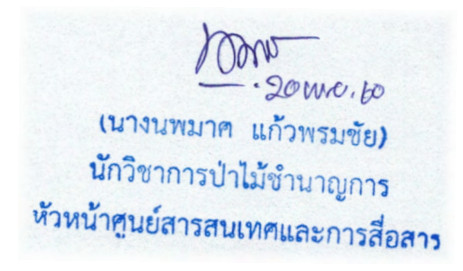 20 พ.ย. 60
(นางนพมาศ แก้วพรมชัย)
นักวิชาการป่าไม้ชำนาญการ
หัวหน้าศูนย์สารสนเทศและการสื่อสาร